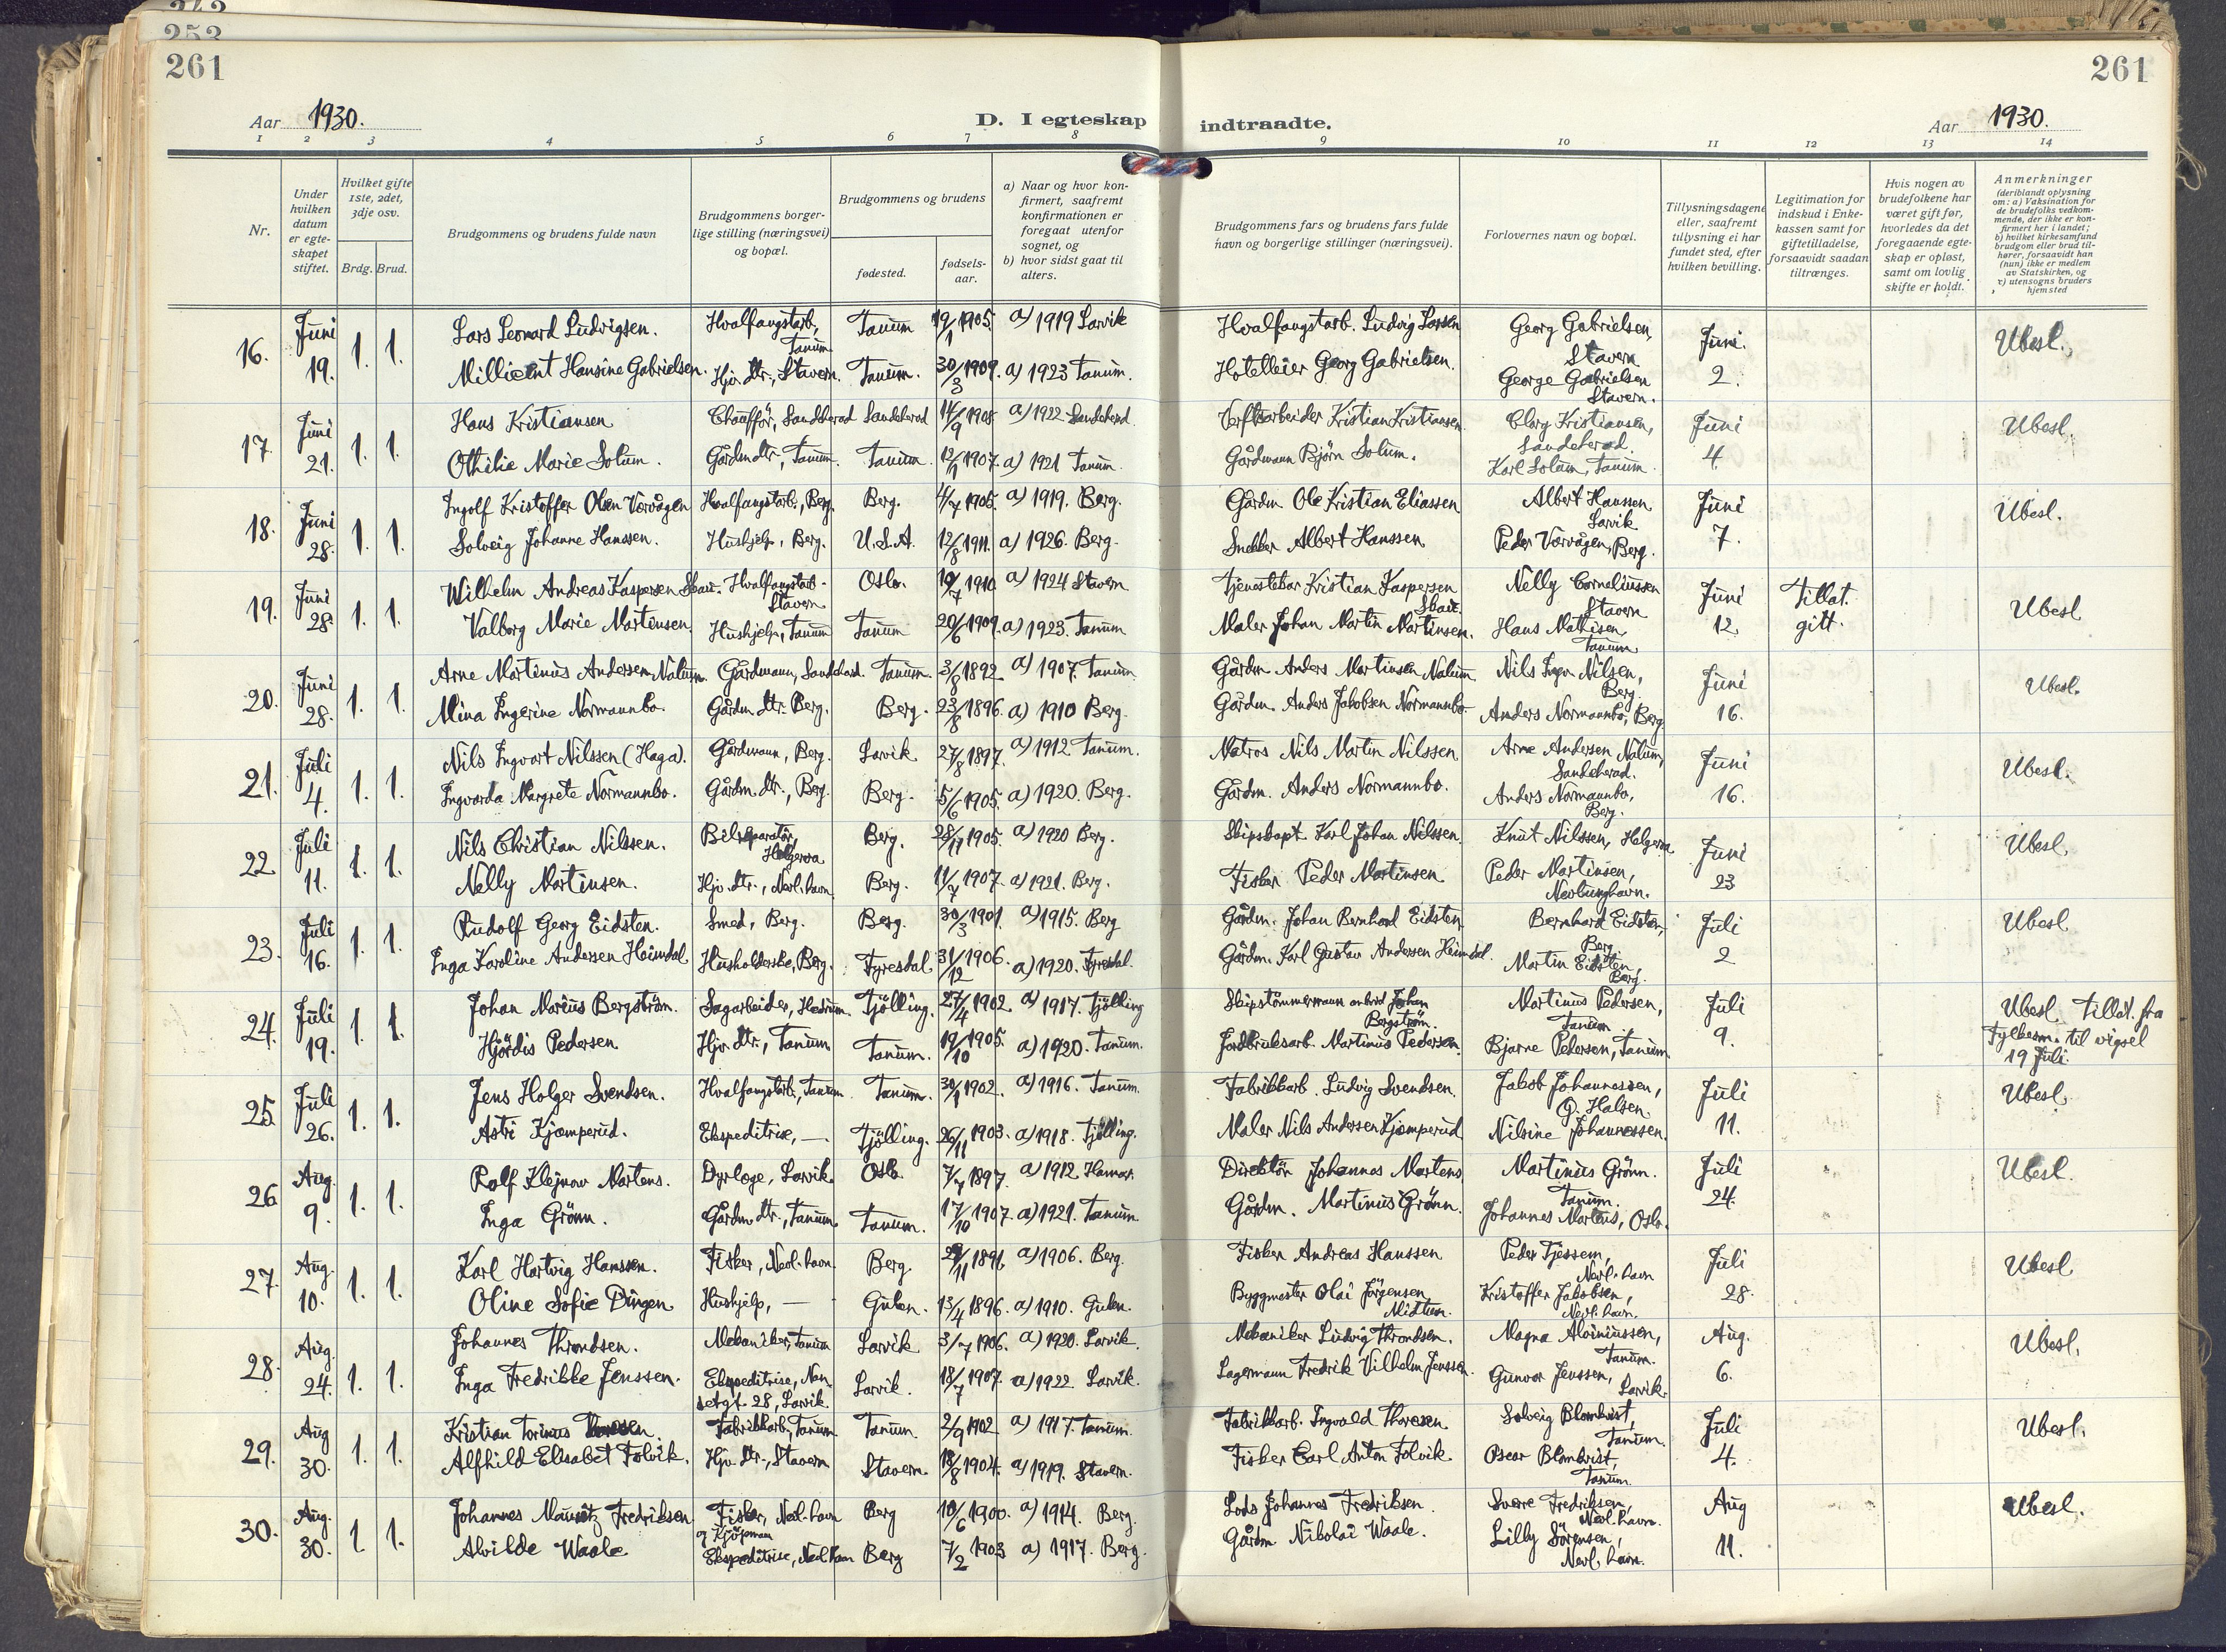 242
253
261
261
Aar 1930.
D. I egteskap indtraadte.
Aar 1930.
1 2 3 4 5 6 7 8 9 10 11 12 13 14
Nr.
Under hvilken datum er egteskapet stiftet.
Hvilket gifte 1ste, 2det, 3dje osv.
Brdg. Brud.
Brudgommens og brudens fulde navn
Brudgommens borgerlige stilling (næringsvei) og bopæl.
Brudgommens og brudens
fødested.
fødselsaar.
a) Naar og hvor konfirmert, saafremt konfirmationen er foregaat utenfor sognet, og
b) hvor sidst gaat til alters.
Brudgommens fars og brudens fars fulde navn og borgerlige stillinger (næringsvei).
Forlovernes navn og bopæl.
Tillysningsdagene eller, saafremt tillysning ei har fundet sted, efter hvilken bevilling.
Legitimation for indskud i Enkekassen samt for giftetilladelse, forsaavidt saadan tiltrænges.
Hvis nogen av brudefolkene har været gift før, hvorledes da det foregaaende egteskap er opløst, samt om lovlig skifte er holdt.
Anmerkninger
(deriblandt oplysning om: a) Vaksination for de brudefolks vedkommende, der ikke er konfirmert her i landet;
b) hvilket kirkesamfund brudgom eller brud tilhører, forsaavidt han (hun) ikke er medlem av Statskirken, og
v) utensogns bruders hjemsted
16. Juni 19. 1. 1. Lars Leonard Ludvigsen. Hvalfangstarb., Tanum Tanum 19/1 1905. a) 1919 Larvik Hvalfangstarb. Ludvig Larsen Georg Gabrielsen, Stavern Juni 2. Ubesl.
Millicent Hansine Gabrielsen. Hjv. dtr., Stavern. Tanum. 30/3 1909. a) 1923 Tanum. Hotelleier Georg Gabrielsen. George Gabrielsen Stavern.
17. Juni 21. 1. 1. Hans Kristiansen Chauffør, Sandeherad Sandeherad 14/9 1908 a) 1922 Sandeherad Verftsarbeider Kristian Kristiansen Georg Kristiansen, Sandeherad. Juni 4. Ubesl.
Othilie Marie Solum. Gårdm dtr., Tanum. Tanum. 12/1 1907. a) 1921 Tanum. Gårdmann Bjørn Solum. Karl Solum, Tanum.
18. Juni 28. 1. 1. Ingolf Kristoffer Olsen Vorvågen Hvalfangstarb., Berg. Berg. 4/7 1905. a) 1919. Berg. Gårdm Ole Kristian Eliassen Albert Hanssen Larvik Juni 7. Ubesl.
Solveig Johanne Hanssen. Hushjelp, Berg. U.S.A. 12/8 1911. a) 1926. Berg. Snekker Albert Hanssen Peder Vorvågen, Berg.
19. Juni 28. 1. 1. Wilhelm Andreas Kaspersen Skaie. Hvalfangstarb. Stavern Oslo. 19/7 1910 a) 1924 Stavern Tjenestekar Kristian Kaspersen Skaie Nelly Corneliussen Stavern Juni 12. Tillat. gitt. Ubesl
Valborg Marie Martinsen. Hushjelp, Tanum Tanum 20/6 1909. a) 1923. Tanum Maler Johan Martin Martinsen. Hans Mathisen Tanum
20. Juni 28. 1. 1. Arne Martinus Andersen Nalum. Gårdmann, Sandeherad. Tanum. 3/8 1892 a) 1907. Tanum. Gårdm Anders Martinsen Nalum Nils Ingv. Nilsen, Berg. Juni 16. Ubesl.
Mina Ingerine Normannbo. Gårdm dtr. Berg. Berg. 23/8 1896. a) 1910 Berg. Gårdm. Anders Jakobsen Normannbo. Anders Normannbo, Berg
21. Juli 4. 1. 1. Nils Ingvart Nilssen (Haga). Gårdmann, Berg. Larvik 27/8 1897. a) 1912 Tanum. Matros Nils Martin Nilssen Arne Andersen Nalum, Sandeherad. Juni 16. Ubesl.
Ingvarda Margrete Normannbo. Gårdm. dtr., Berg. Berg. 5/6 1905. a) 1920. Berg. Gårdm. Anders Normannbo. Anders Normannbo, Berg.
22 Juli 11. 1. 1. Nils Christian Nilssen. Bilreparatør, Helgeroa Berg. 28/11 1905. a) 1920 Berg. Skipskapt. Karl Johan Nilssen. Knut Nilssen, Helgeroa Juni 23 Ubesl.
Nelly Martinsen. Hjv. dtr., Nevl.havn Berg. 11/7 1907. a) 1921. Berg. Fisker Peder Martinsen. Peder Martinsen, Nevlunghavn.
23. Juli 16. 1. 1. Rudolf Georg Eidsten. Smed, Berg. Berg. 30/3 1901. a) 1915. Berg Gårdm. Johan Bernhard Eidsten. Bernhard Eidsten, Berg Juli 2 Ubesl
Inga Karoline Andersen Heimdal Husholderske, Berg. Fyresdal 31/12 1906. a) 1920. Fyresdal. Gårdm. Karl Gustav Andersen Heimdal. Martin Eidsten, Berg.
24. Juli 19. 1. 1. Johan Marius Bergström. Sagarbeider, Hedrum. Tjølling. 27/4 1902 a) 1917. Tjølling Skipstømmermann Johan Bergström. Martinus Pedersen, Tanum Juli 9. Ubesl. Tillat. fra Fylkesm. til vigsel 19 Juli.
Hjördis Pedersen Hjv dtr., Tanum Tanum. 19/10 1905. a) 1920. Tanum. Jordbruksarb. Martinus Pedersen. Bjarne Pedersen, Tanum.
25. Juli 26. 1. 1. Jens Holger Svendsen. Hvalfangstarb., Tanum Tanum. 30/1 1902. a) 1916. Tanum. Fabrikkarb. Ludvig Svendsen. Jakob Johannessen, G. Halsen Juli 11. Ubesl.
Astri Kjæmperud. Ekspeditrise, — Tjølling. 26/11 1903. a) 1918. Tjølling. Maler Nils Andersen Kjæmperud Nilsine Johannessen.
26 Aug. 9. 1. 1. Rolf Klejnow Martens. Dyrlæge, Larvik Oslo 7/7 1897. a) 1912 Hamar. Direktør Johannes Martens Martinus Grönn. Tanum. Juli 24. Ubesl.
Inga Grönn. Gårdm dtr., Tanum Tanum. 17/10 1907. a) 1921. Tanum. Gårdm. Martinus Grönn. Johannes Martens, Oslo.
27. Aug. 10. 1. 1. Karl Hartvig Hanssen. Fisker, Nevl.havn. Berg. 29/11 1891. a) 1906. Berg. Fisker Andreas Hanssen Peder Tjessem, Nevl.havn Juli 28. Ubesl.
Oline Sofie Dingen Hushjelp, — Gulen. 13/4 1896. a) 1910. Gulen. Byggmester Olai Jörgensen Midtun. Kristoffer Jakobsen, Nevl.havn.
28. Aug. 24. 1. 1. Johannes Throndsen. Mekaniker, Tanum Larvik 3/7 1906. a) 1920. Larvik. Mekaniker Ludvig Throndsen. Magna Alviniussen, Tanum. Aug. 6. Ubesl.
Inga Fredrikke Jenssen. Ekspeditrise, Nansetgt. 28, Larvik. Larvik. 18/7 1907. a) 1922 Larvik. Lagermann Fredrik Vilhelm Jenssen. Gunvor Jenssen, Larvik.
29. Aug 30. 1. 1. Kristian Torinus Thoresen. Fabrikkarb., Tanum Tanum. 2/9 1902 a) 1917. Tanum. Fabrikkarb. Ingvald Thoresen Solveig Blomkvist, Tanum. Juli 4. Ubesl.
Alfhild Elisabet Folvik. Hjv. dtr., Stavern Stavern. 18/8 1904. a) 1919. Stavern. Fisker Carl Anton Folvik. Oscar Blomkvist, Tanum.
30. Aug. 30. 1. 1. Johannes Mauritz Fredriksen Fisker, Nevl.havn og Kjøpmann Berg 10/6 1900. a) 1914. Berg. Lods Johannes Fredriksen. Sverre Fredriksen, Nevl.havn. Aug 11. Ubesl.
Alvilde Waale Ekspeditrise, Nevl.havn Berg 7/2 1903 a) 1917. Berg. Gårdm Nikolai Waale. Lilly Sörensen, Nevl.havn.